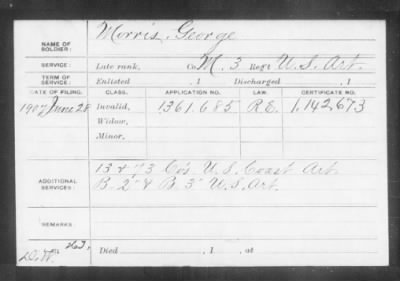 Morris, George
NAME OF SOLDIER:
SERVICE: Late rank, Co. M. 3 Reg't U.S. Art.
TERM OF SERVICE: Enlisted , 1 Discharged , 1
DATE OF FILING. CLASS. APPLICATION NO. LAW. CERTIFICATE NO.
1907 June 28 Invalid, 1361.685 R.E. 1,142,673
Widow,
Minor,
ADDITIONAL SERVICES: 13 & 73 Co's U.S. Coast Art.
B- 2" & B. 3" U.S. Art.
REMARKS:
Died , 1 , at